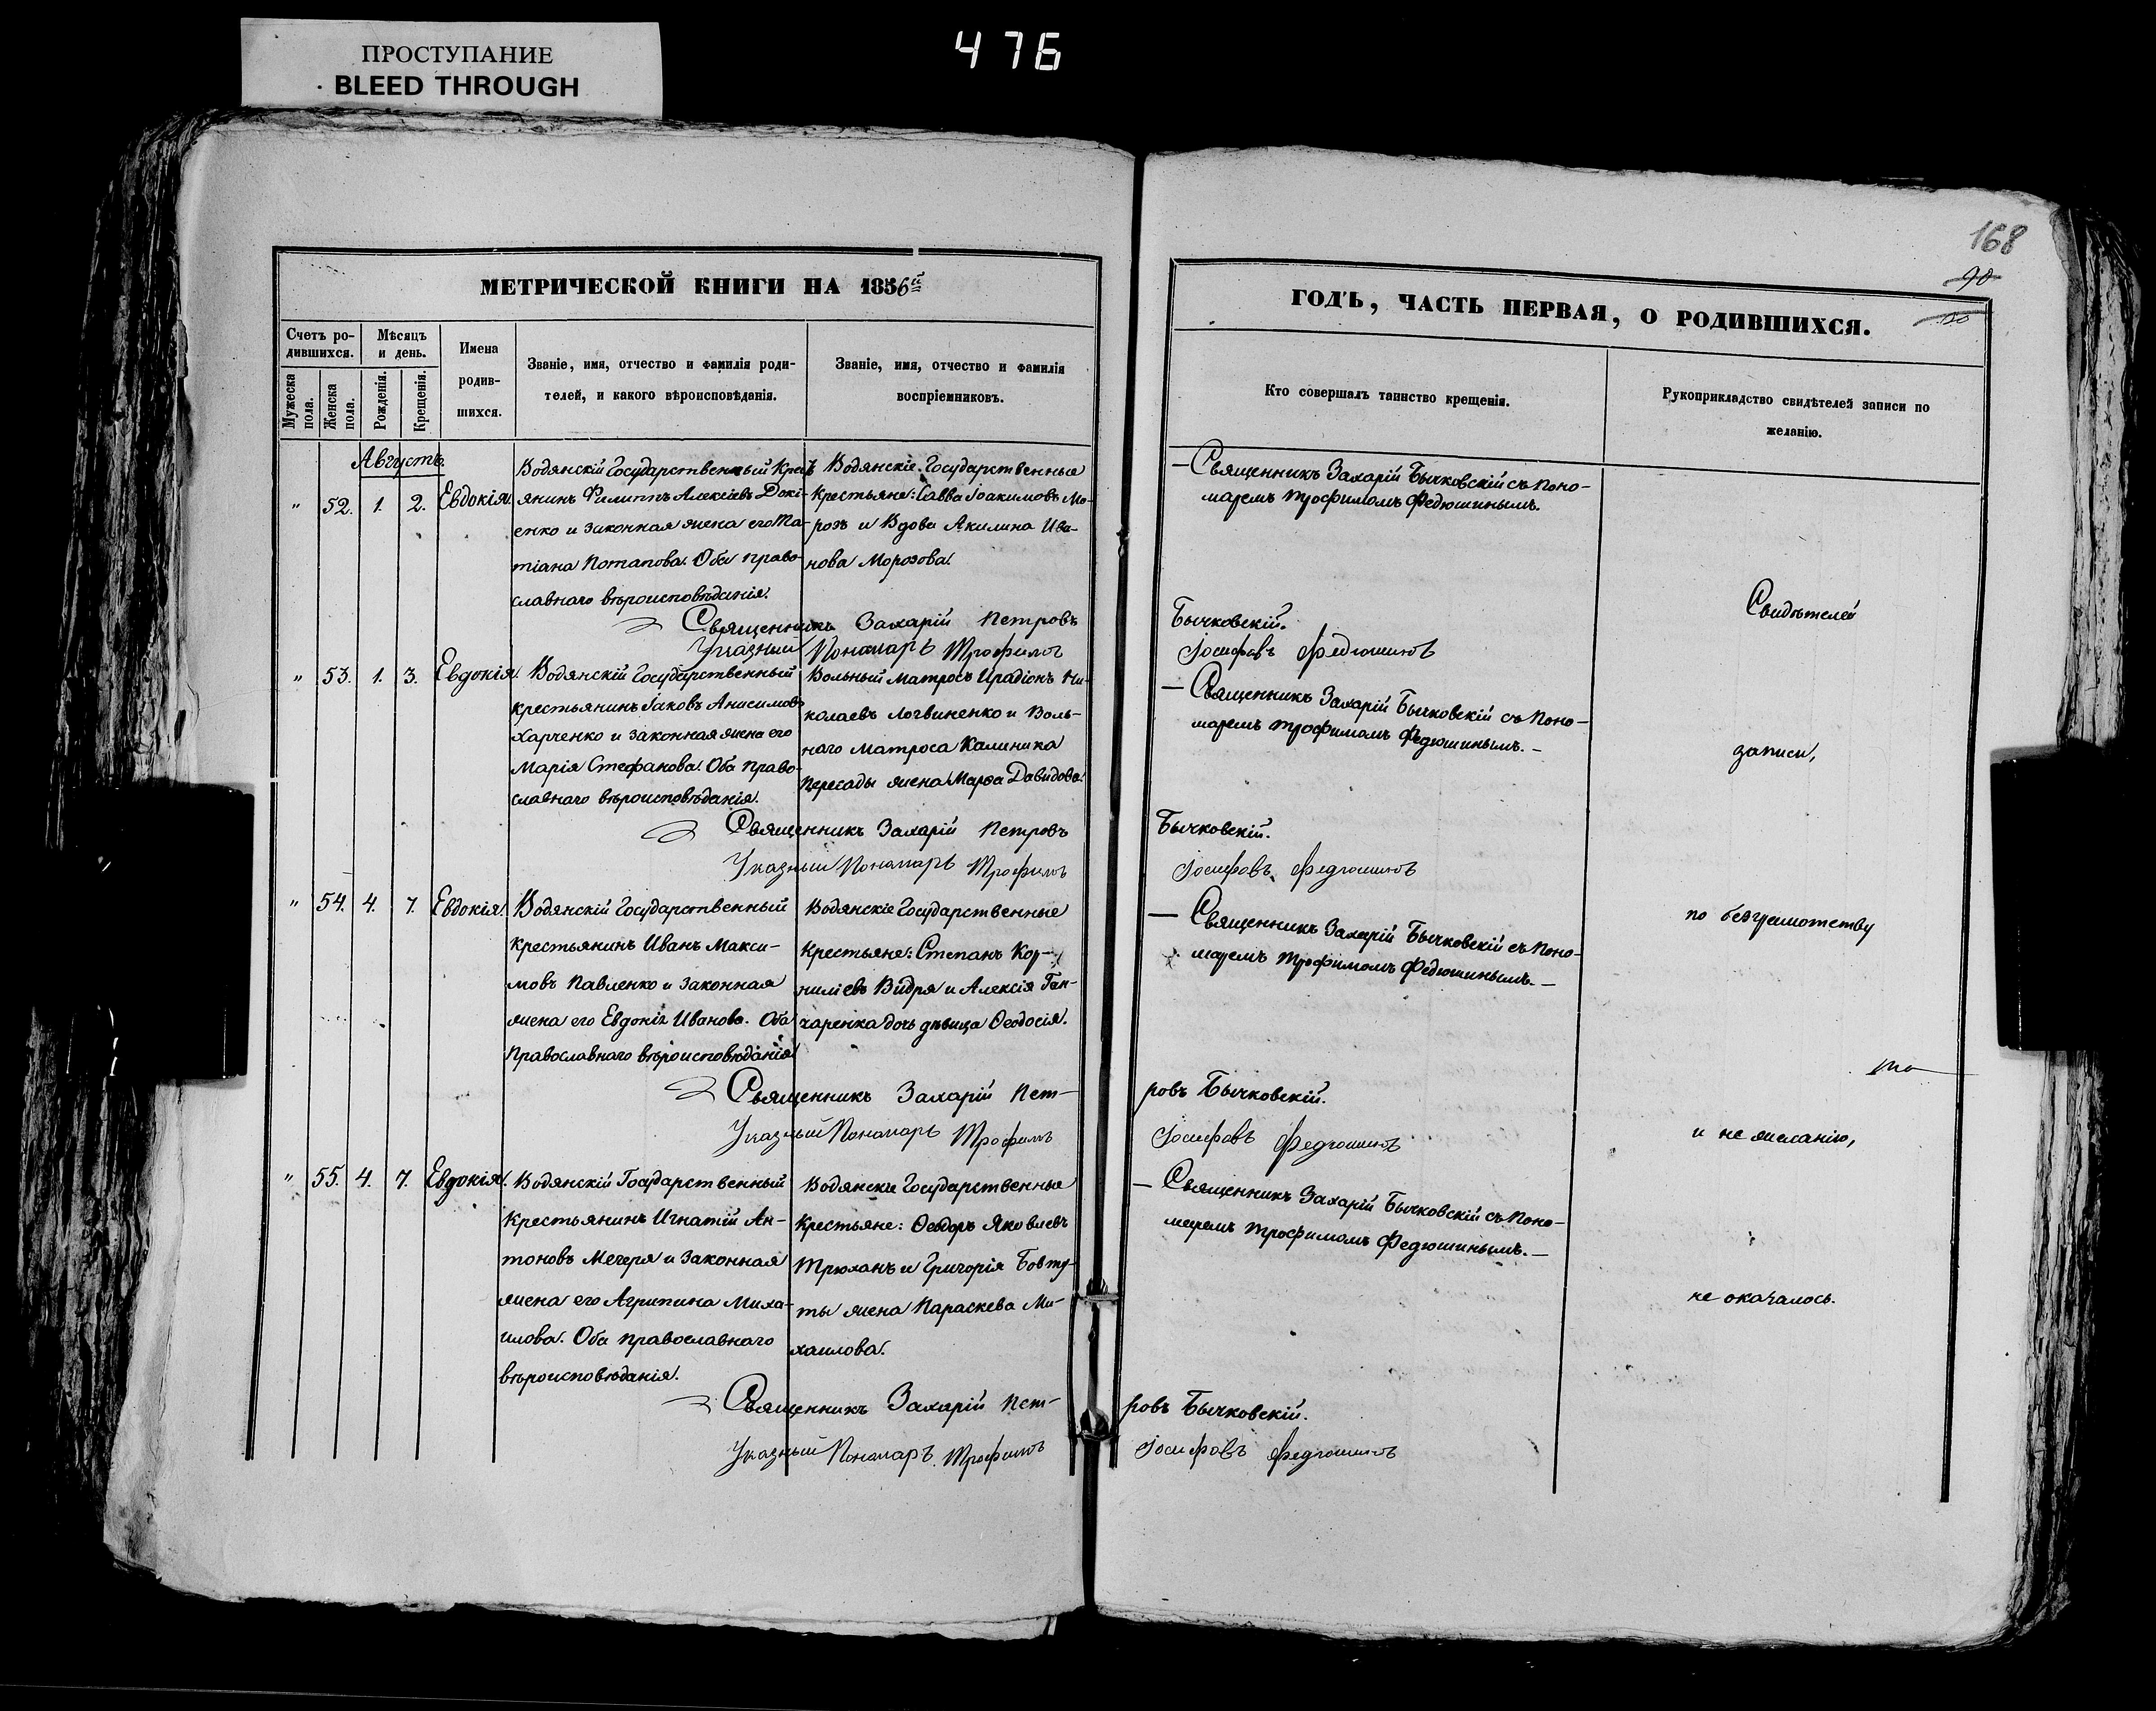 ПРОСТУПАНИЕ
BLEED THROUGH
476
168
90
МЕТРИЧЕСКОЙ КНИГИ НА 1856й
ГОДЪ, ЧАСТЬ ПЕРВАЯ, О РОДИВШИХСЯ.
Счетъ ро-
дившихся.
Мужеска
пола.
Женска
пола.
Мѣсяцъ
и день.
Рожденія.
Крещенія.
Имена
родив-
шихся.
Званіе, имя, отчество и фамилія роди-
телей, и какого вѣроисповѣданія.
Званіе, имя, отчество и фамилія
воспріемниковъ.
Кто совершалъ таинство крещенія.
Рукоприкладство свидѣтелей записи по
желанію.
Августъ.
" 52. 1. 2. Евдокія.
Водянскій Государственный Крест
янинъ Филиппъ Алексіевъ Докі-
енко и законная жена его Та-
тіана Потапова. Оба право-
славнаго вѣроисповѣданія.
Водянскіе Государственные
Крестьяне: Савва Іоакимовъ Мо-
розъ и Вдова Акилина Ива-
нова Морозова.
— Священникъ Захарій Бычковскій съ Поно-
маремъ Трофимомъ Федюшинымъ.
Священникъ Захарій Петровъ Бычковскій.
Указный Пономарь Трофимъ Іосифовъ Федюшинъ
" 53. 1. 3. Евдокія.
Водянскій Государственный
крестьянинъ Іаковъ Анисимовъ
Харченко и законная жена его
Марія Стефанова. Оба Право-
славнаго вѣроисповѣданія.
Вольный Матросъ Иродіонъ Ни-
колаевъ Логвиненко и Воль-
наго матроса Калиника
Пересады жена Марѳа Давидова.
— Священникъ Захарій Бычковскій съ Поно-
маремъ Трофимомъ Федюшинымъ. —
Священникъ Захарій Петровъ Бычковскій.
Указный Пономарь Трофимъ Іосифовъ Федюшинъ
" 54. 4. 7. Евдокія.
Водянскій Государственный
крестьянинъ Иванъ Макси-
мовъ Павленко и законная
жена его Евдокія Иванова. Оба
Православнаго вѣроисповѣданія.
Водянскіе Государственные
Крестьяне: Степанъ Кор-
ниліевъ Видря и Алексія Ган-
чаренка дочь дѣвица Ѳеодосія.
— Священникъ Захарій Бычковскій съ Поно-
маремъ Трофимомъ Федюшинымъ. —
Священникъ Захарій Пет- ровъ Бычковскій.
Указный Пономарь Трофимъ Іосифовъ Федюшинъ
" 55. 4. 7. Евдокія.
Водянскій Государственный
Крестьянинъ Игнатій Ан-
тоновъ Мечеря и законная
жена его Агрипина Миха-
илова. Оба православнаго
вѣроисповѣданія.
Водянскіе Государственные
Крестьяне: Ѳеодоръ Яковлевъ
Трюханъ и Григорія Бовту-
ты жена Параскева Ми-
хаилова.
— Священникъ Захарій Бычковскій съ Поно-
маремъ Трофимомъ Федюшинымъ. —
Священникъ Захарій Пет- ровъ Бычковскій.
Указный Пономарь Трофимъ Іосифовъ Федюшинъ
Свидѣтелей
записи,
по безграмотству
и не желанію,
не оказалось.